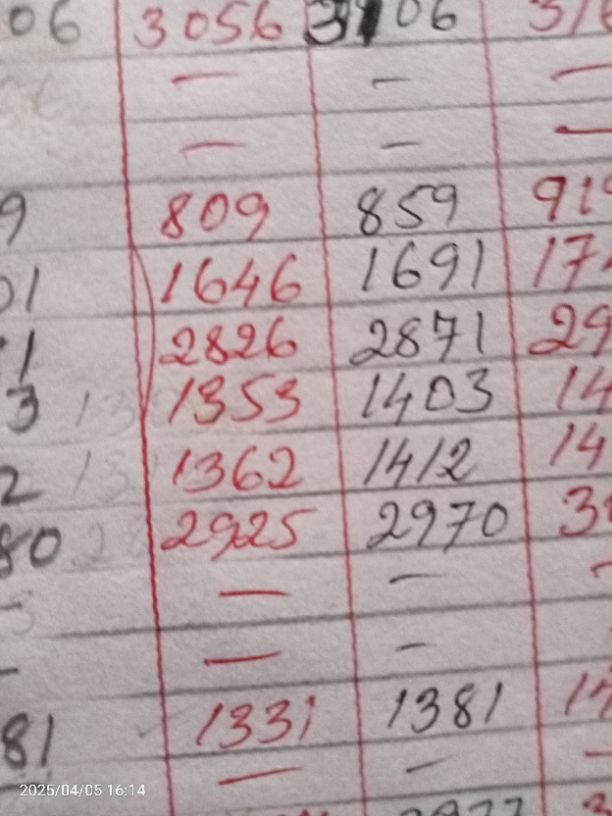 06 3056 3106
— — —
— — —
9 809 859 919
01 1646 1691 17
1 2826 2871 29
3 13 1353 1403 14
2 13 1362 1412 14
80 2925 2970
— — — —
— — —
81 1331 1381 14
— — —
2025/04/05 16:14